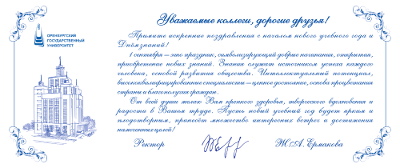 ОРЕНБУРГСКИЙ
ГОСУДАРСТВЕННЫЙ
УНИВЕРСИТЕТ
Уважаемые коллеги, дорогие друзья!
Примите искренние поздравления с началом нового учебного года и
Днём знаний!
1 сентября – это праздник, символизирующий добрые начинания, открытия,
приобретение новых знаний. Знания служат источником успеха каждого
человека, основой развития общества. Интеллектуальный потенциал,
высококвалифицированные специалисты – ценное достояние, основа процветания
страны и благополучия граждан.
От всей души желаю Вам крепкого здоровья, творческого вдохновения и
радости в Вашем труде. Пусть новый учебный год будет ярким и
плодотворным, принесёт множество интересных встреч и достижения
намеченных целей!
Ректор
Ж.А. Ермакова